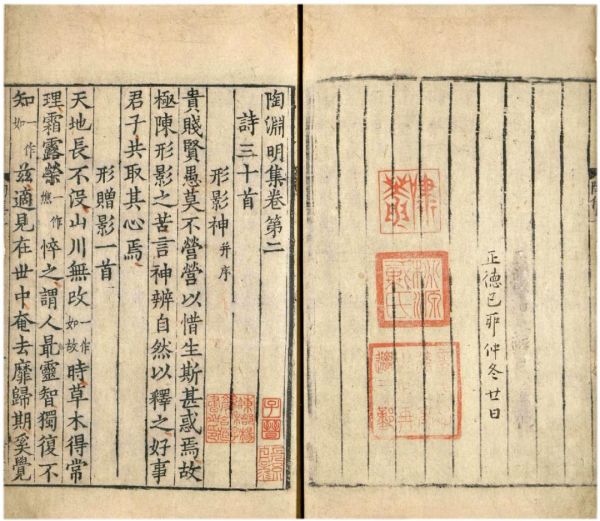 正德己卯仲冬廿日
陶淵明集卷第二
詩三十首
形影神并序
貴賤賢愚莫不營營以惜生斯甚惑焉故
極陳形影之苦言神辨自然以釋之好事
君子共取其心焉
形贈影一首
天地長不没山川無改一作如故時草木得常
理霜露榮一作憔悴之謂人最靈智獨復不
知一作如兹適見在世中奄去靡歸期奚覺
子晉